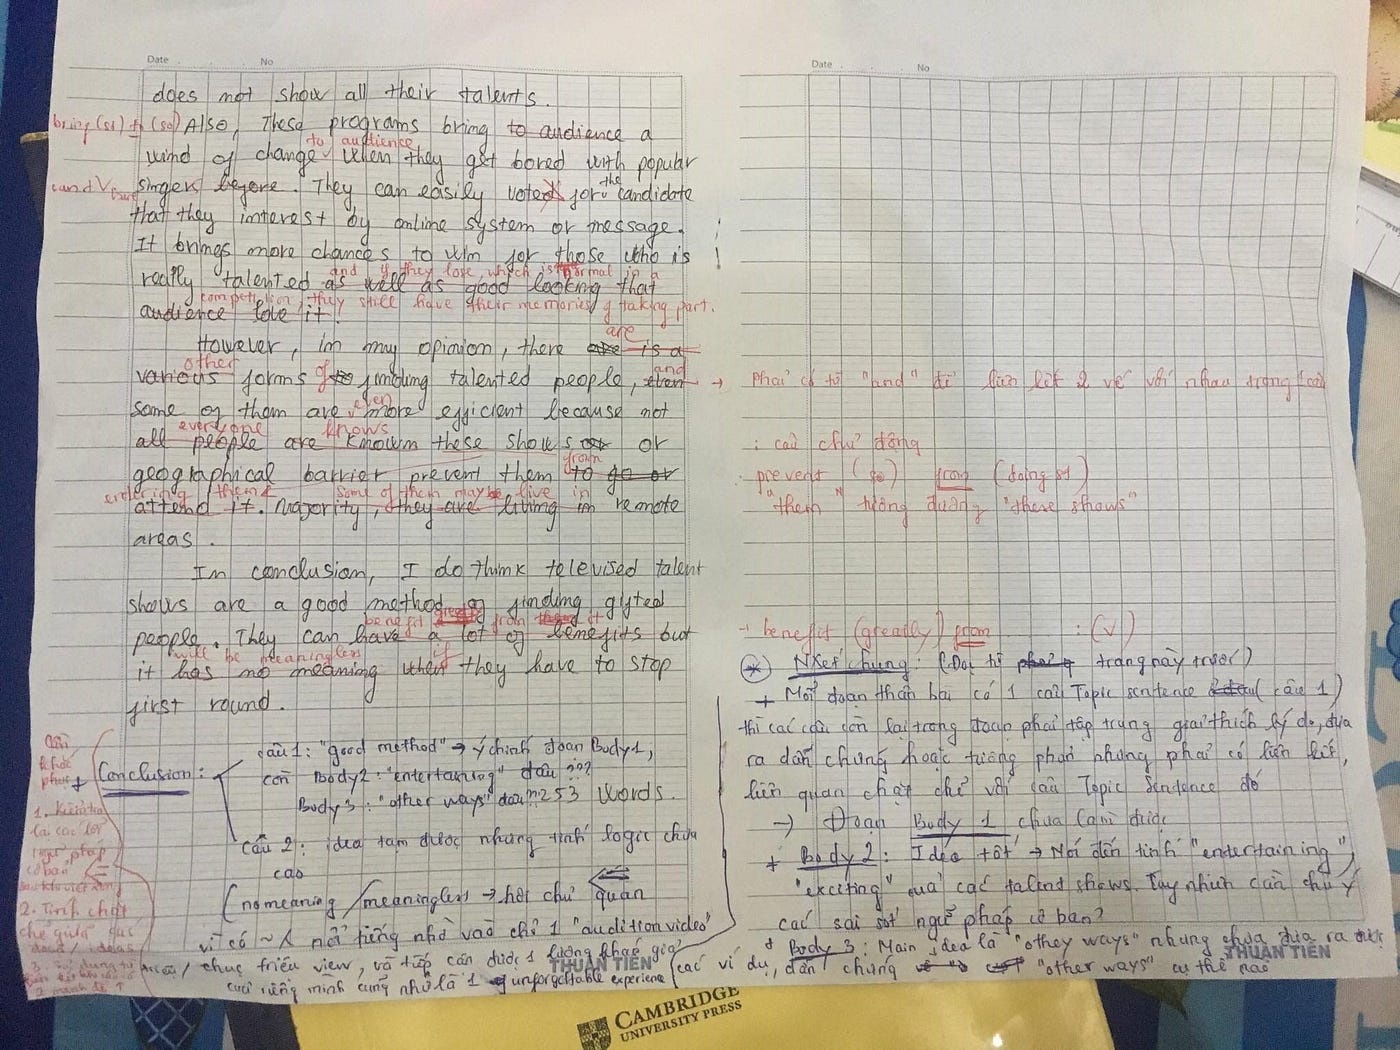 Date No
does not show all their talents.
bring (st) to (so) Also, These programs bring to audience a
to audience
wind of change when they get bored with popular
cand V singers before. They can easily voted for the candidate
that they interest by online system or message.
It brings more chances to win for those who is
and if they lose, which is normal in a
really talented as well as good looking that
competition, they still have their memories of taking part.
audience love it.
are
However, in my opinion, there are is a
other and
various forms of to finding talented people, even
even
some of them are more efficient because not
everyone knows
all people are known these shows or or
from
geographical barrier prevent them to go or
entering them some of them maybe live in
attend it. Majority, they are living in remote
areas.
In conclusion, I do think televised talent
shows are a good method of finding gifted
benefit greatly from it
people. They can have a lot of benefits but
will be meaningless if
it has no meaning when they have to stop
first round.
+ Conclusion:
câu 1: "good method" → ý chính đoạn Body 1,
còn Body 2: "entertaining" đâu ??
Body 3: "other ways" đâu ?? 253 words.
Câu 2: idea tạm được nhưng tính logic chưa
cao
(no meaning / meaningless → hơi chủ quan
vì có ~ A nổi tiếng nhờ vào chỉ 1 "audition video"
chục triệu view, và tiếp cận được 1 lượng khán giả
của riêng mình cũng như là 1 unforgettable experience
THUẬN TIẾN
Cần khắc phục
1. Kiểm tra
lại các lỗi
ngữ pháp
cơ bản
sau khi viết xong
2. Tính chặt
chẽ giữa các
Date No
→ Phải có từ "and" để liên kết 2 vế với nhau trong câu
: câu chủ động
: prevent (so) from (doing st)
"them" tương đương "these shows"
→ benefit (greatly) from : (v)
* NXét chung: (Đọc từ trang này trước)
+ Mỗi đoạn thân bài có 1 câu Topic sentence (câu 1)
thì các câu còn lại trong đoạn phải tập trung giải thích lý do, đưa
ra dẫn chứng hoặc tương phản nhưng phải có liên kết,
liên quan chặt chẽ với câu Topic Sentence đó
→ Đoạn Body 1 chưa làm được
+ Body 2: Idea tốt → Nói đến tính "entertaining",
"exciting" của các talent shows. Tuy nhiên cần chú ý
các sai sót ngữ pháp cơ bản?
+ Body 3: Main idea là "other ways" nhưng chưa đưa ra được
các ví dụ, dẫn chứng "other ways" cụ thể nào
THUẬN TIẾN
CAMBRIDGE
UNIVERSITY PRESS